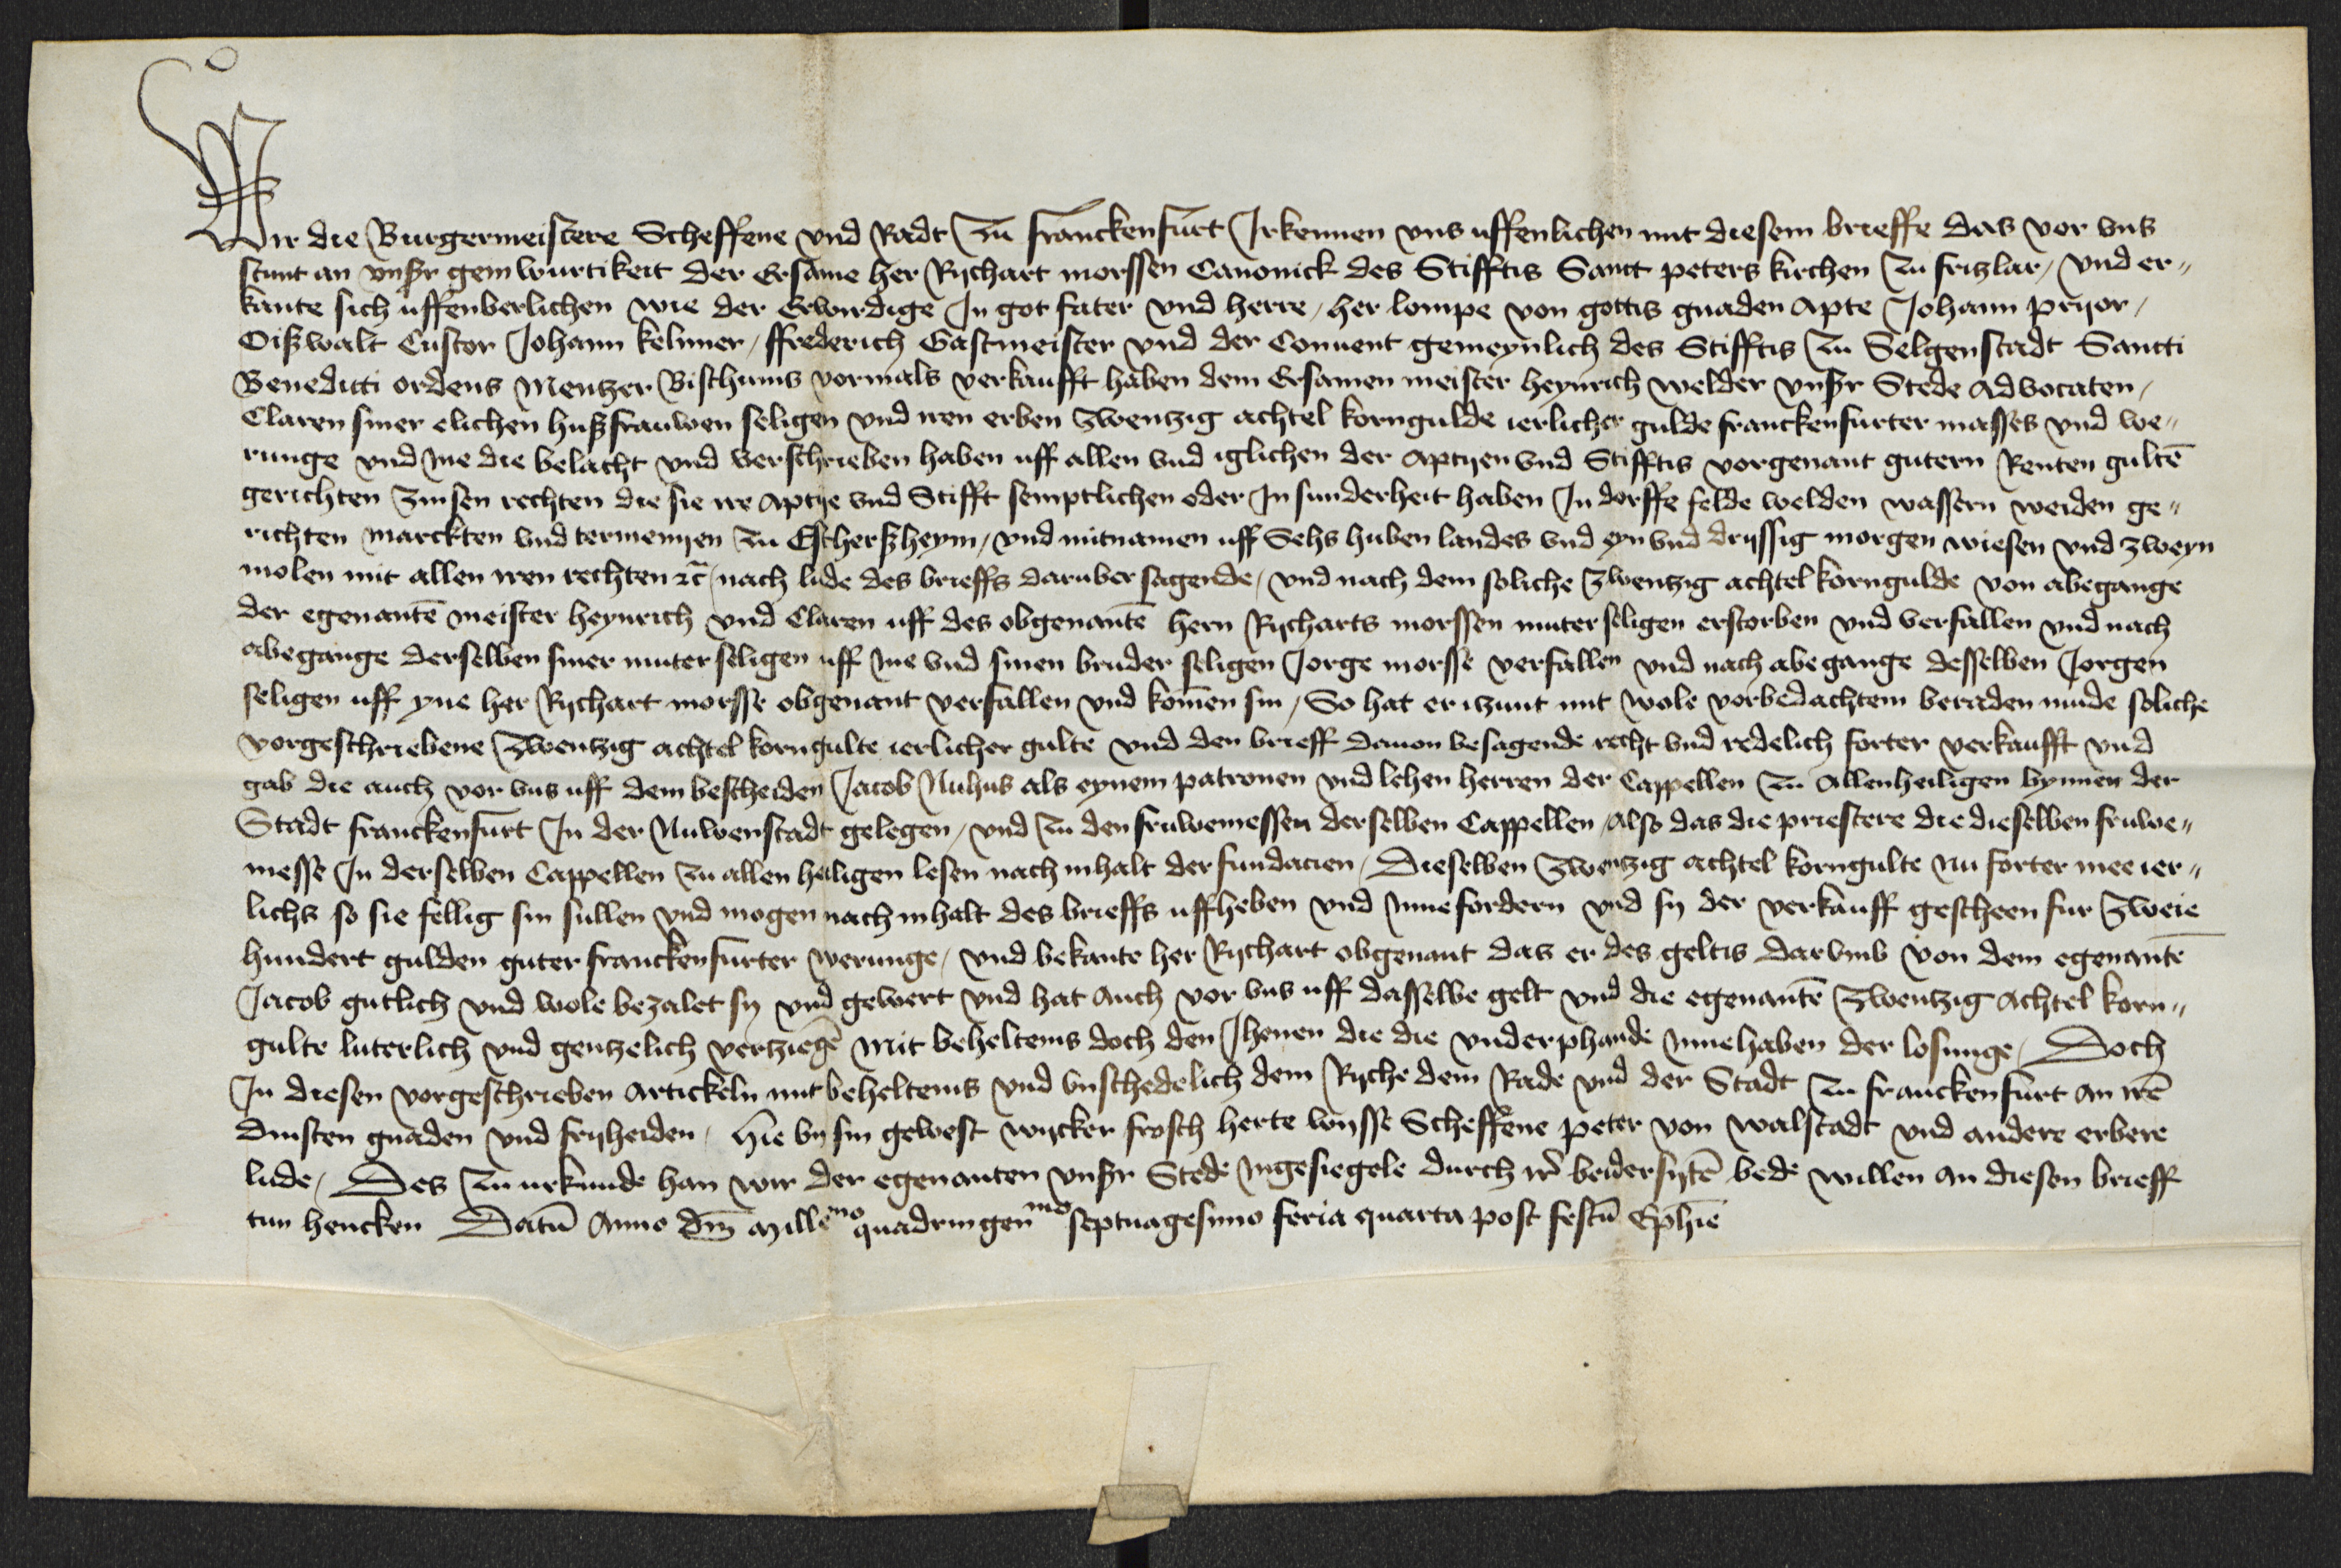 Wir die Burgermeistere Scheffene vnd Radt zu franckenfurt Irkennen vns uffenlichen mit diesem brieffe das vor vns
stunt an vnser geinwurtikeit der Ersame her Rychart morssen Canonick des Stifftis Sanct peters kirchen zu friczlar / vnd er„
kante sich uffenberlichen wie der Erwirdige In got fater vnd herre / her lompe von gottis gnaden Apte Johann pryor /
Oißwalt Custor Johann kelnner / ffrederich Gastmeister vnd der Conuent gemeynlich des Stifftis zu Selgenstadt Sancti
Benedicti ordens Mentzer Bischtums vormals verkaufft haben dem Ersamen meister heynrich welder vnser Stede Advocaten /
Claren siner elichen hußfrauwen seligen vnd iren erben zwentzig achtel korngulde ierlicher gulde franckenfurter masses vnd we„
runge vnd ine die belacht vnd verschrieben haben uff allen vnd iglichen der Aptyen vnd Stifftis vorgenant gutern Renten gultē
gerichten zinsen rechten die sie ire Aptye vnd Stifft semptlichen oder In sunderheit haben In dorffe felde welden wassern weiden ge„
richten marckten vnd termenyen zu Eschersheym / vnd mitnamen uff Sehs huben landes vnd eyn vnd dryssig morgen wiesen vnd zweyn
molen mit allen iren rechten ꝛc̄ / nach lude des brieffs daruber sagende / vnd nach dem soliche zwentzig achtel korngulde von abegange
der egenantē meister heynrich vnd Claren uff des obgenantē hern Rycharts morssen muter seligen erstorben vnd verfallen vnd nach
abegange derselben siner muter seligen uff ine vnd sinen bruder seligen Jorge morsse verfallen vnd nach abegange desselben Jorgen
seligen uff yne her Rychart morsse obgenant verfallen vnd komēn sin / So hat er itzunt mit wole vorbedachtem beraden mude soliche
vorgeschriebene zwentzig achtel korngulte ierlicher gulte vnd den brieff dauon besagende recht vnd redelich forter verkaufft vnd
gab die auch vor vns uff dem bescheiden Jacob Nuhus als eynem patronen vnd lehen herren der Cappellen zu Allenheiligen bynnen der
Stadt franckenfurt In der Nuwenstadt gelegen / vnd zu den fruwemessen derselben Cappellen / Also das die priestere die dieselben fruwe„
messe In derselben Cappellen zu allen heiligen lesen nach inhalt der fundacien / Dieselben zwentzig achtel korngulte nu forter mee ier„
lichs so sie fellig sin sullen vnd mogen nach inhalt des brieffs uffheben vnd Innefordern vnd sy der verkauff gescheen fur zweie
hundert gulden guter franckenfurter werunge / vnd bekante her Rychart obgenant das er des geltis darvmb von dem egenantē
Jacob gutlich vnd wole bezalet sy vnd gewert vnd hat auch vor vns uff dasselbe gelt vnd die egenantē zwentzig Achtel korn„
gulte luterlich vnd gentzelich vertziegē mit beheltenis doch den Jhenen die die vnderphande Innehaben der losunge / Doch
In diesen vorgeschrieben Artickeln mit beheltenis vnd vnschedelich dem Ryche dem Rade vnd der Stadt zu franckenfurt An irē
dinsten gnaden vnd fryheiden / hie by sin gewest wycker frosch herte wysse Scheffene peter von walstadt vnd andere erbere
lude / Des zu urkunde han wir der egenanten vnser Stede Ingesiegele durch ir̄ beidersytē bede willen an diesen brieff
tun hencken Datū Anno dm̄ Millemo quadringenmo septuagesimo feria quarta post festū Ephīe